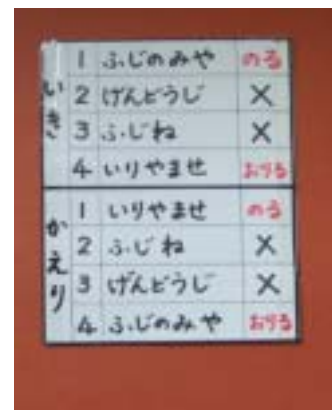 いき
1 ふじのみや のる
2 げんどうじ ×
3 ふじね ×
4 いりやませ おりる
かえり
1 いりやませ のる
2 ふじね ×
3 げんどうじ ×
4 ふじのみや おりる